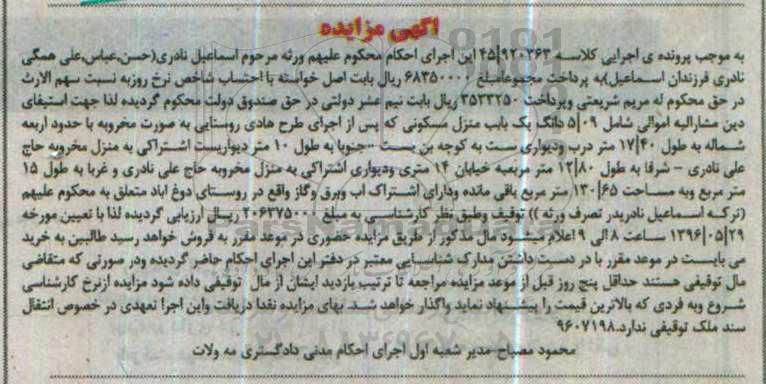 آگهی مزایده
به موجب پرونده ی اجرایی کلاسه 920363|45این اجرای احکام محکوم علیهم ورثه مرحوم اسماعیل نادری(حسن،عباس،علی همگی
نادری فرزندان اسماعیل)به پرداخت مجموعامبلغ 68350000 ریال بابت اصل خواسته با احتساب شاخص نرخ روزبه نسبت سهم الارث
در حق محکوم له مریم شریعتی وپرداخت 3533250 ریال بابت نیم عشر دولتی در حق صندوق دولت محکوم گردیده لذا جهت استیفای
دین مشارالیه اموالی شامل 09|5 دانگ یک باب منزل مسکونی که پس از اجرای طرح هادی روستایی به صورت مخروبه با حدود اربعه
شماله به طول 40|17 متر درب ودیواری ست به کوچه بن بست -جنوبا به طول 10 متر دیواریست اشتراکی به منزل مخروبه حاج
علی نادری - شرقا به طول 80|12 متر مربعبه خیابان 14 متری ودیواری اشتراکی به منزل مخروبه حاج علی نادری و غربا به طول 15
متر مربع وبه مساحت 65|130 متر مربع باقی مانده ودارای اشتراک اب وبرق وگاز واقع در روستای دوغ اباد متعلق به محکوم علیهم
(ترکه اسماعیل نادریدر تصرف ورثه )) توقیف وطبق نظر کارشناسی به مبلغ 206375000 ریال ارزیابی گردیده لذا با تعیین مورخه
29|05|1396 ساعت 8 الی 9 اعلام میشود مال مذکور از طریق مزایده حضوری در موعد مقرر به فروش خواهد رسید طالبین به خرید
می بایست در موعد مقرر با در دست داشتن مدارک شناسایی معتبر در دفتر این اجرای احکام حاضر گردیده ودر صورتی که متقاضی
مال توقیفی هستند حداقل پنج روز قبل از موعد مزایده مراجعه تا ترتیب بازدید ایشان از مال توقیفی داده شود مزایده ازنرخ کارشناسی
شروع وبه فردی که بالاترین قیمت را پیشنهاد نماید واگذار خواهد شد. بهای مزایده نقدا دریافت واین اجرا تعهدی در خصوص انتقال
سند ملک توقیفی ندارد.9607198
محمود مصباح-مدیر شعبه اول اجرای احکام مدنی دادگستری مه ولات
ParsNamadData